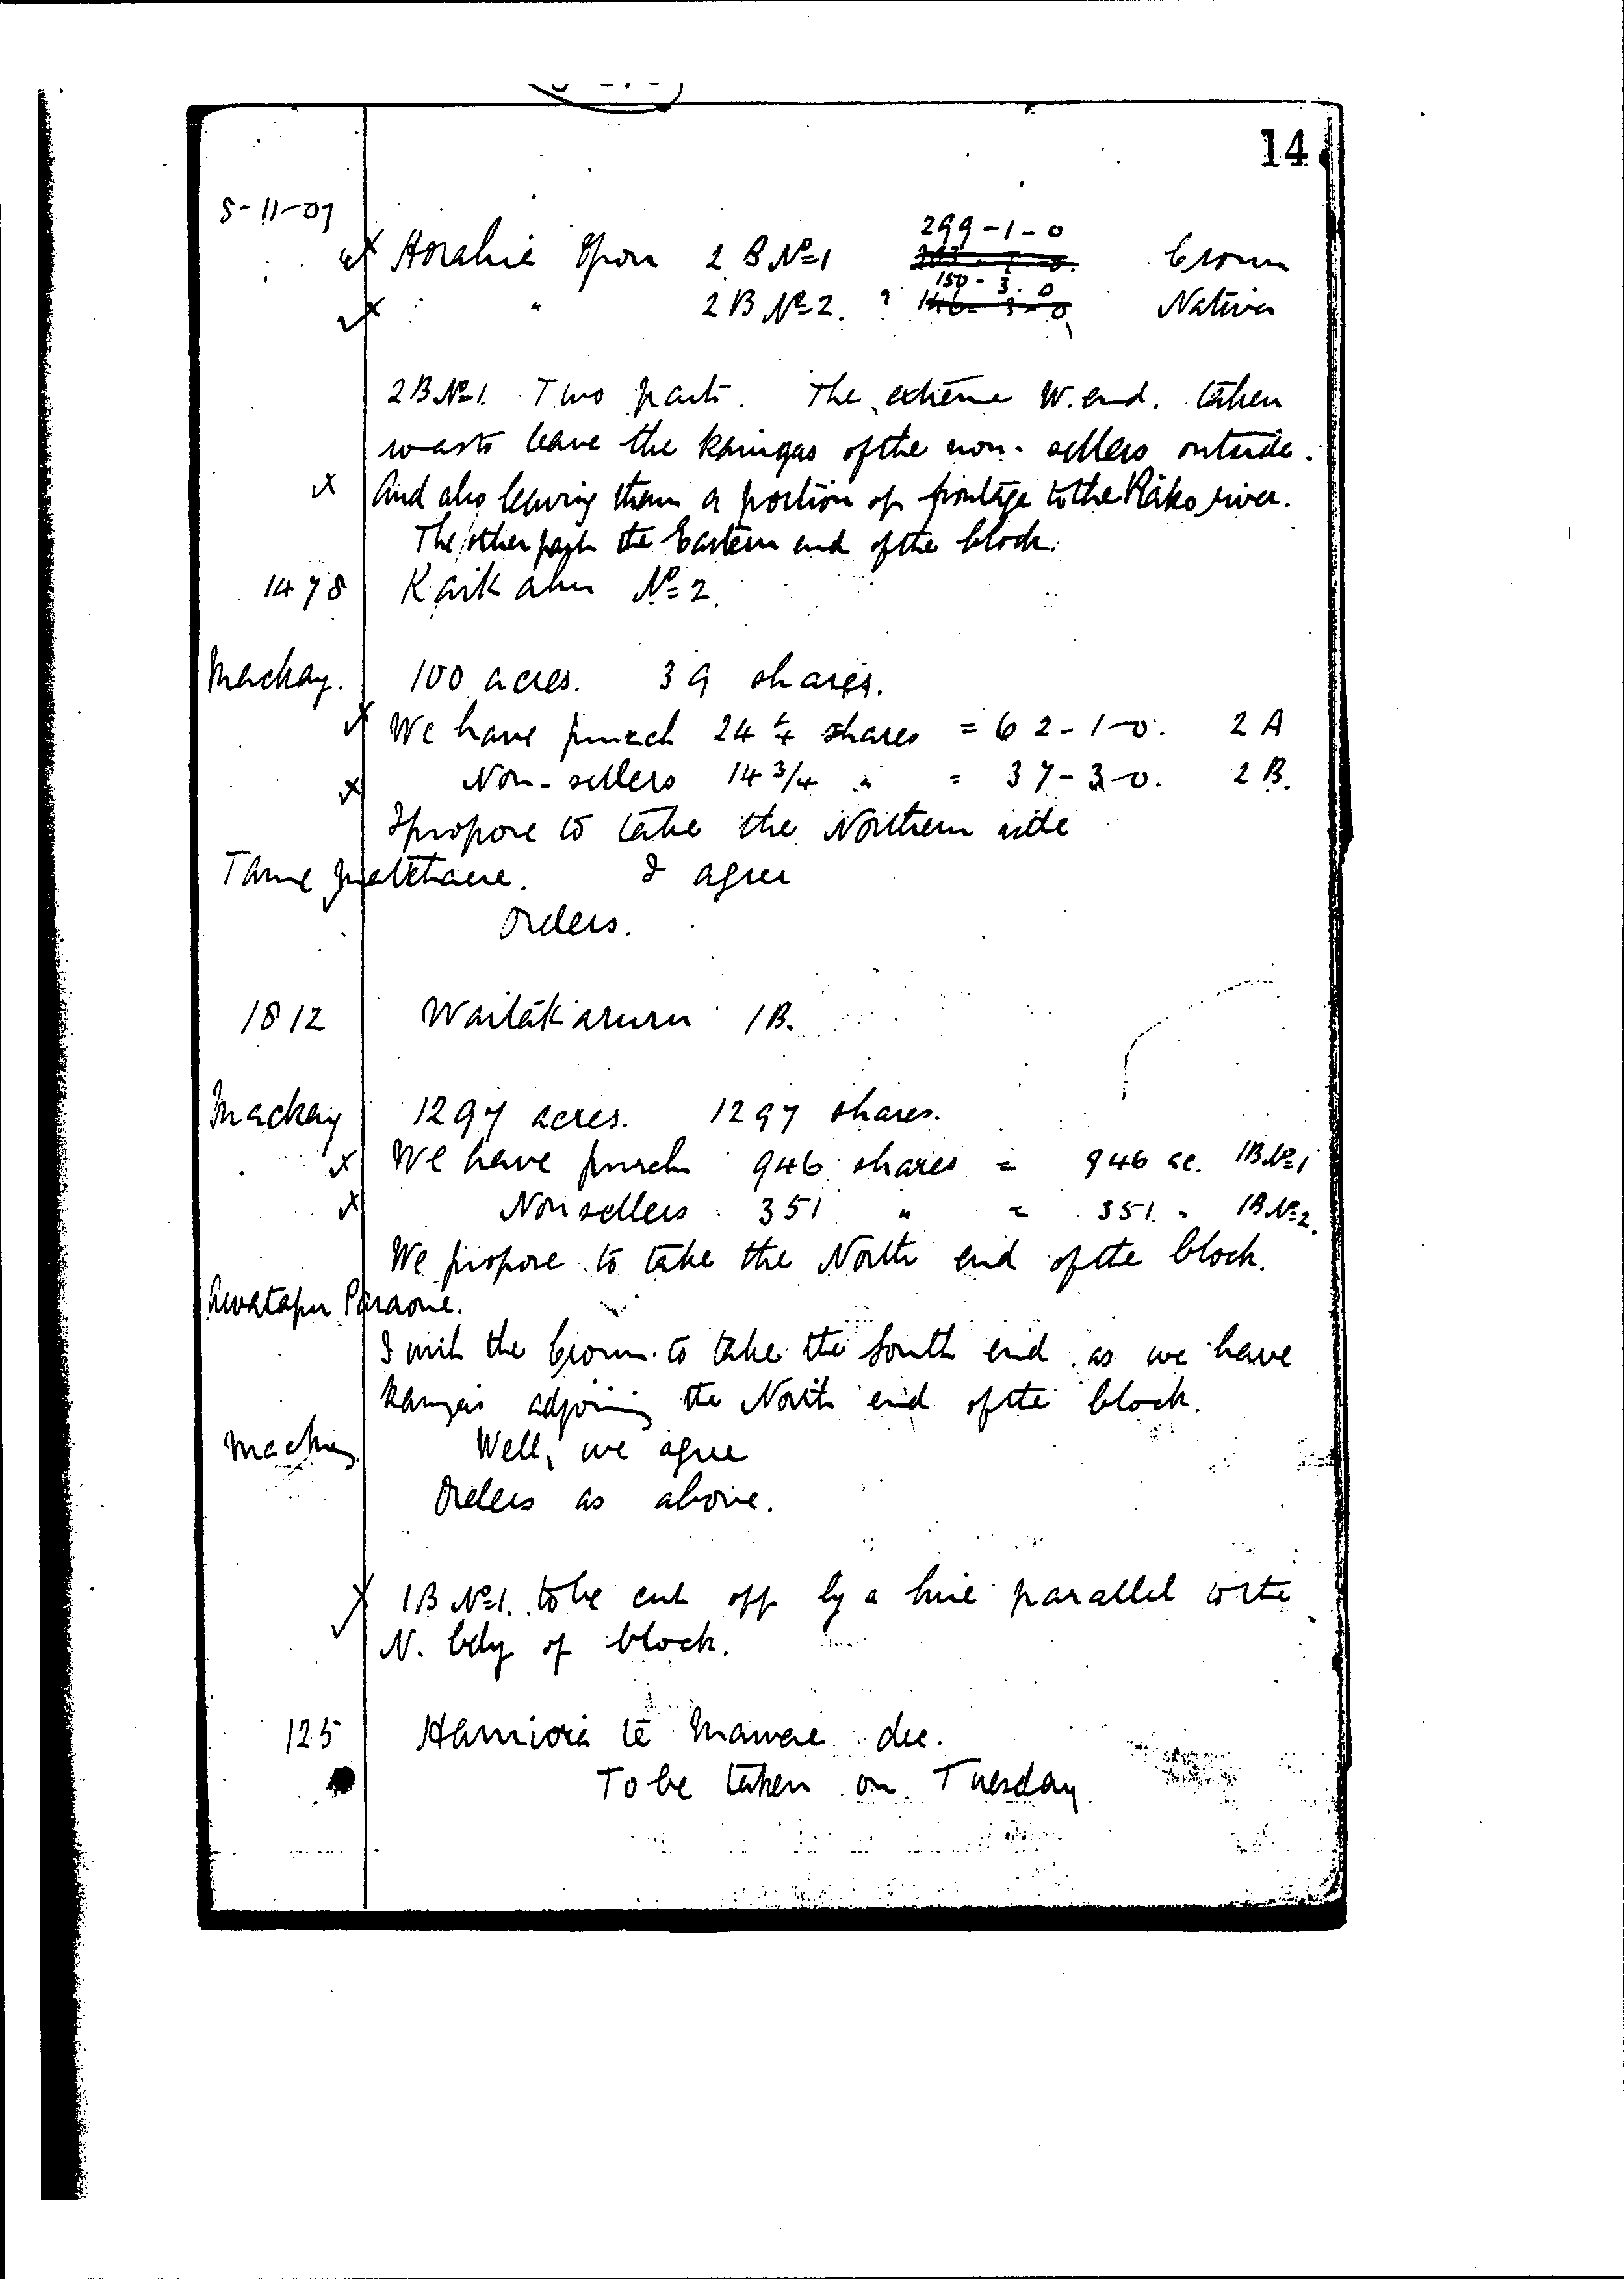 14
5-11-07
Horahia Opou 2 B Nº1 299-1-0 Crown
" 2 B Nº2. 150-3.0 146-3-0 Natives
2B Nº1. Two parts. The extreme W. end. taken
so as to leave the kaingas of the non-sellers outside.
And also leaving them a portion of frontage to the Piako river.
The other part the Eastern end of the block.
1478 Kaikahu Nº2.
Mackay. 100 acres. 39 shares.
We have purch 24 1/4 shares = 62-1-0. 2A
Non-sellers 14 3/4 " = 37-3-0. 2B.
I propose to take the Northern side
Tame I agree
Orders.
1812 Waitakaruru 1B.
Mackay 1297 acres. 1297 shares.
We have purch 946 shares = 946 ac. 1B Nº1
Non sellers 351 " = 351. " 1B Nº2.
We propose to take the North end of the block.
Awatapu Paraone.
I wish the Crown to take the South end as we have
kangas adjoining the North end of the block.
Mackay Well, we agree
Orders as above.
1B Nº1. to be cut off by a line parallel to the
N. bdy of block.
125 Hamiora te Mawere dec.
To be taken on Tuesday